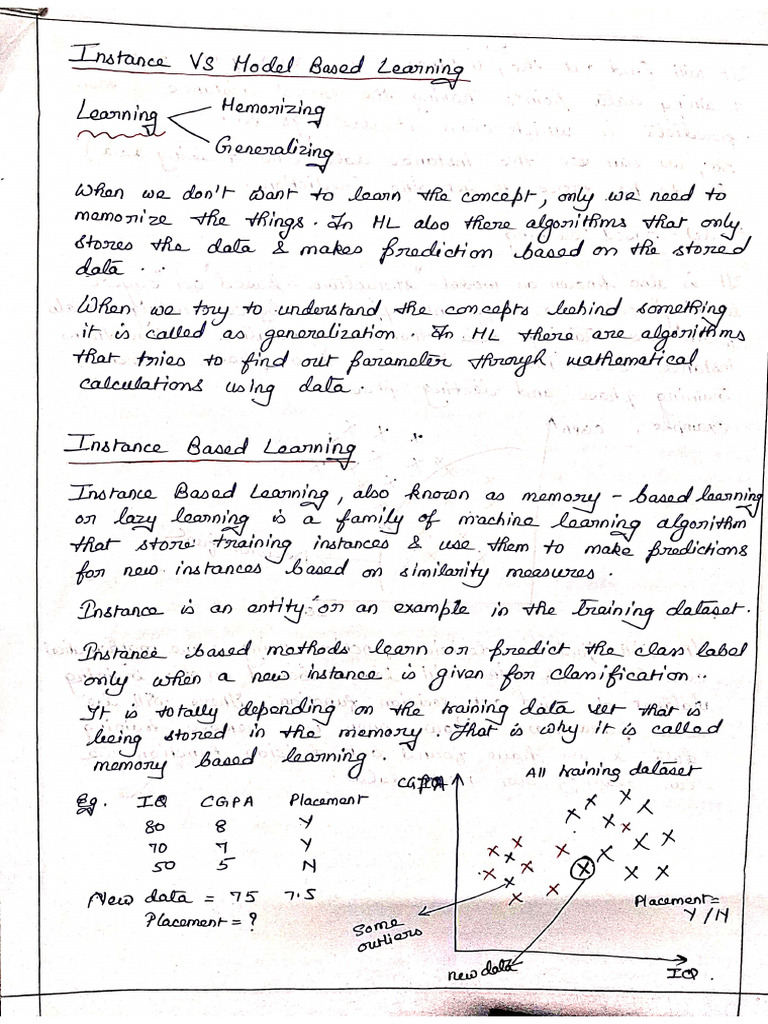 Instance VS Model Based Learning
Learning
Memorizing
Generalizing
When we don't want to learn the concept, only we need to
memorize the things. In ML also there algorithms that only
stores the data & makes prediction based on the stored
data.
When we try to understand the concepts behind something
it is called as generalization. In ML there are algorithms
that tries to find out parameter through mathematical
calculations using data.
Instance Based Learning
Instance Based Learning, also known as memory-based learning
or lazy learning is a family of machine learning algorithm
that store training instances & use them to make predictions
for new instances based on similarity measures.
Instance is an entity or an example in the training dataset.
Instance based methods learn or predict the class label
only when a new instance is given for classification.
It is totally depending on the training data set that is
being stored in the memory. That is why it is called
memory based learning.
Eg. IQ CGPA Placement
80 8 Y
70 7 Y
50 5 N
New data = 75 7.5
Placement = ?
CGPA
All training dataset
Placement =
Y/N
Some
outliers
new data
IQ.